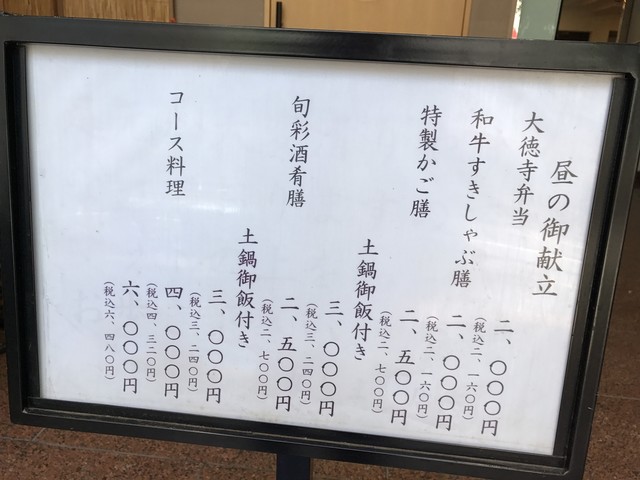 昼の御献立
大徳寺弁当
二、〇〇〇円
（税込二、一六〇円）
和牛すきしゃぶ膳
二、〇〇〇円
（税込二、一六〇円）
特製かご膳
二、五〇〇円
（税込二、七〇〇円）
土鍋御飯付き
三、〇〇〇円
（税込三、二四〇円）
旬彩酒肴膳
二、五〇〇円
（税込二、七〇〇円）
土鍋御飯付き
三、〇〇〇円
（税込三、二四〇円）
コース料理
四、〇〇〇円
（税込四、三二〇円）
六、〇〇〇円
（税込六、四八〇円）